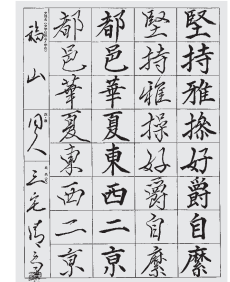 堅持雅操好爵自縻
堅持雅操好爵自縻
都邑華夏東西二京
都邑華夏東西二京
福山
同人
三宅